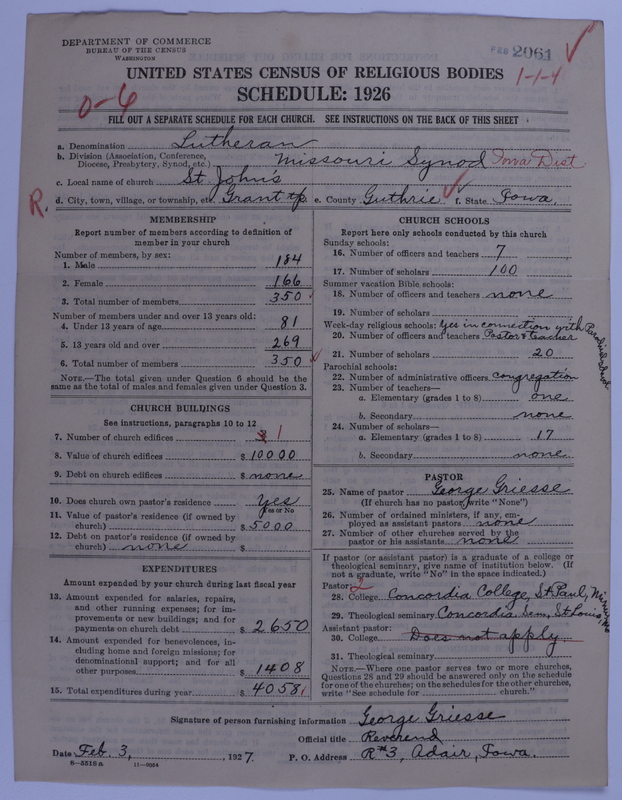 DEPARTMENT OF COMMERCE
BUREAU OF THE CENSUS
WASHINGTON
2061
UNITED STATES CENSUS OF RELIGIOUS BODIES
1-1-4
SCHEDULE: 1926
0-6
FILL OUT A SEPARATE SCHEDULE FOR EACH CHURCH. SEE INSTRUCTIONS ON THE BACK OF THIS SHEET
a. Denomination Lutheran
b. Division (Association, Conference, Diocese, Presbytery, Synod, etc.) Missouri Synod Iowa Dist
c. Local name of church St John's
R. d. City, town, village, or township, etc. Grant tp e. County Guthrie f. State Iowa.
MEMBERSHIP
Report number of members according to definition of
member in your church
Number of members, by sex:
1. Male 184
2. Female 166
3. Total number of members 350
Number of members under and over 13 years old:
4. Under 13 years of age 81
5. 13 years old and over 269
6. Total number of members 350
NOTE.—The total given under Question 6 should be the
same as the total of males and females given under Question 3.
CHURCH BUILDINGS
See instructions, paragraphs 10 to 12
7. Number of church edifices 1
8. Value of church edifices $ 10000
9. Debt on church edifices $ none
10. Does church own pastor's residence Yes
Yes or No
11. Value of pastor's residence (if owned by
church) $ 5000
12. Debt on pastor's residence (if owned by
church) none $
EXPENDITURES
Amount expended by your church during last fiscal year
13. Amount expended for salaries, repairs,
and other running expenses; for im-
provements or new buildings; and for
payments on church debt $ 2650
14. Amount expended for benevolences, in-
cluding home and foreign missions; for
denominational support; and for all
other purposes $ 1408
15. Total expenditures during year $ 4058
CHURCH SCHOOLS
Report here only schools conducted by this church
Sunday schools:
16. Number of officers and teachers 7
17. Number of scholars 100
Summer vacation Bible schools:
18. Number of officers and teachers none
19. Number of scholars
Week-day religious schools: Yes in connection with Parochial school
20. Number of officers and teachers Pastor & teacher
21. Number of scholars 20
Parochial schools:
22. Number of administrative officers congregation
23. Number of teachers—
a. Elementary (grades 1 to 8) one
b. Secondary none
24. Number of scholars—
a. Elementary (grades 1 to 8) 17
b. Secondary none
PASTOR
25. Name of pastor George Griesse
(If church has no pastor, write "None")
26. Number of ordained ministers, if any, em-
ployed as assistant pastors none
27. Number of other churches served by the
pastor or his assistants none
If pastor (or assistant pastor) is a graduate of a college or
theological seminary, give name of institution below. (If
not a graduate, write "No" in the space indicated.)
Pastor: 2
28. College Concordia College, St Paul, Minn
29. Theological seminary Concordia Sem, St Louis, Mo
Assistant pastor:
30. College Does not apply
31. Theological seminary
NOTE.—Where one pastor serves two or more churches,
Questions 28 and 29 should be answered only on the schedule
for one of the churches; on the schedules for the other churches,
write "See schedule for church."
Signature of person furnishing information George Griesse
Official title Reverend
Date Feb. 3, 1927. P. O. Address R#3, Adair, Iowa.
8—5518 a 11—9264